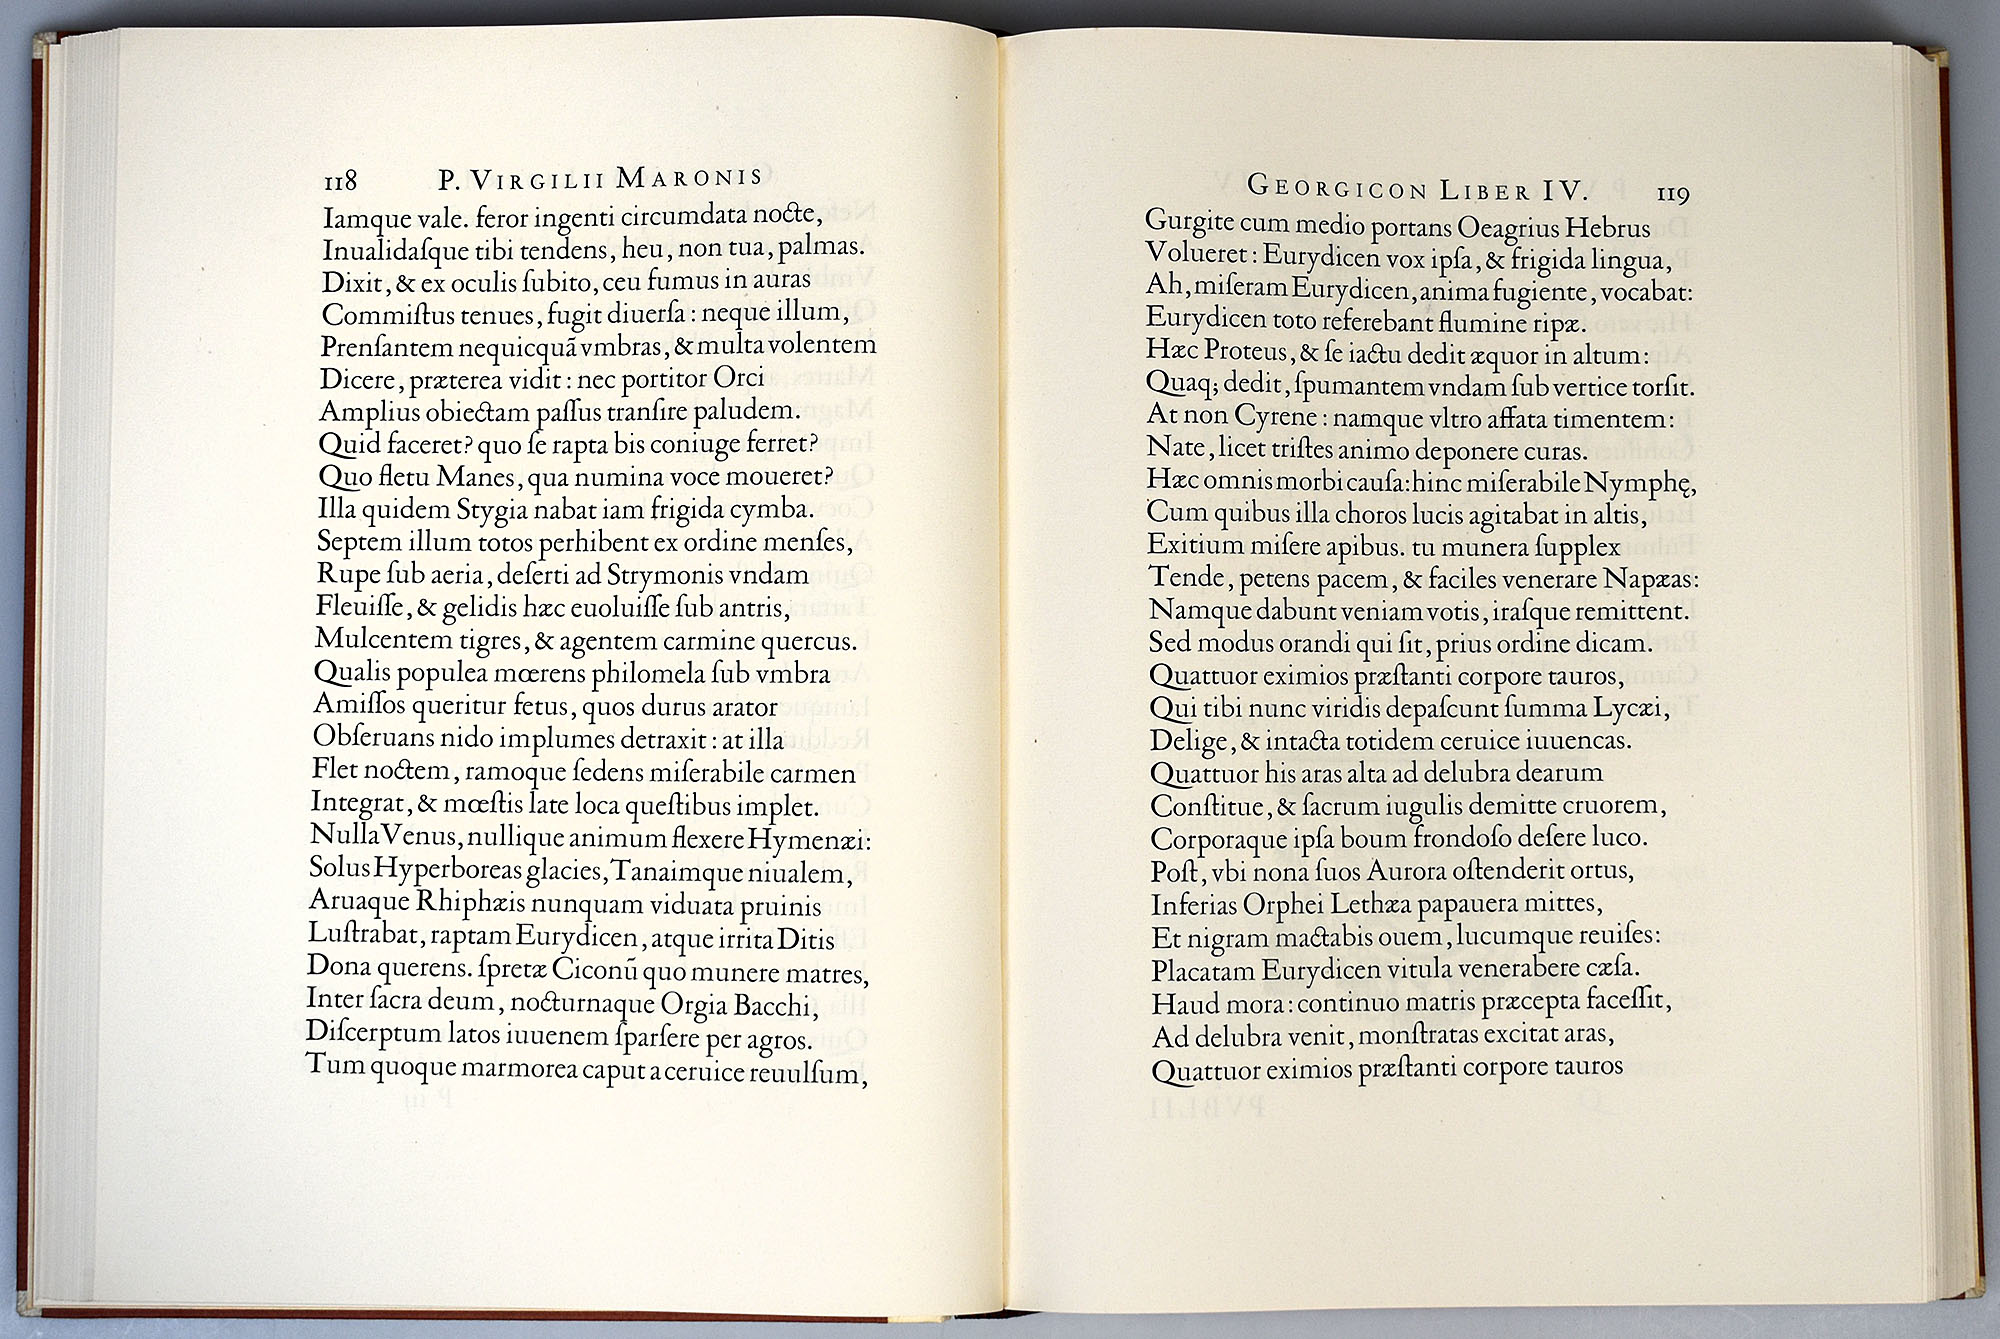 118 P. VIRGILII MARONIS
Iamque vale. feror ingenti circumdata nocte,
Inualidaſque tibi tendens, heu, non tua, palmas.
Dixit, & ex oculis ſubito, ceu fumus in auras
Commiſtus tenues, fugit diuerſa: neque illum,
Prenſantem nequicquã vmbras, & multa volentem
Dicere, præterea vidit: nec portitor Orci
Amplius obiectam paſſus tranſire paludem.
Quid faceret? quo ſe rapta bis coniuge ferret?
Quo fletu Manes, qua numina voce moueret?
Illa quidem Stygia nabat iam frigida cymba.
Septem illum totos perhibent ex ordine menſes,
Rupe ſub aeria, deſerti ad Strymonis vndam
Fleuiſſe, & gelidis hæc euoluiſſe ſub antris,
Mulcentem tigres, & agentem carmine quercus.
Qualis populea mœrens philomela ſub vmbra
Amiſſos queritur fetus, quos durus arator
Obſeruans nido implumes detraxit: at illa
Flet noctem, ramoque ſedens miſerabile carmen
Integrat, & mœſtis late loca queſtibus implet.
Nulla Venus, nullique animum flexere Hymenæi:
Solus Hyperboreas glacies, Tanaimque niualem,
Aruaque Rhiphæis nunquam viduata pruinis
Luſtrabat, raptam Eurydicen, atque irrita Ditis
Dona querens. ſpretæ Ciconũ quo munere matres,
Inter ſacra deum, nocturnaque Orgia Bacchi,
Diſcerptum latos iuuenem ſparſere per agros.
Tum quoque marmorea caput a ceruice reuulſum,
GEORGICON LIBER IV. 119
Gurgite cum medio portans Oeagrius Hebrus
Volueret: Eurydicen vox ipſa, & frigida lingua,
Ah, miſeram Eurydicen, anima fugiente, vocabat:
Eurydicen toto referebant flumine ripæ.
Hæc Proteus, & ſe iactu dedit æquor in altum:
Quaq; dedit, ſpumantem vndam ſub vertice torſit.
At non Cyrene: namque vltro affata timentem:
Nate, licet triſtes animo deponere curas.
Hæc omnis morbi cauſa: hinc miſerabile Nymphę,
Cum quibus illa choros lucis agitabat in altis,
Exitium miſere apibus. tu munera ſupplex
Tende, petens pacem, & faciles venerare Napæas:
Namque dabunt veniam votis, iraſque remittent.
Sed modus orandi qui ſit, prius ordine dicam.
Quattuor eximios præſtanti corpore tauros,
Qui tibi nunc viridis depaſcunt ſumma Lycæi,
Delige, & intacta totidem ceruice iuuencas.
Quattuor his aras alta ad delubra dearum
Conſtitue, & ſacrum iugulis demitte cruorem,
Corporaque ipſa boum frondoſo deſere luco.
Poſt, vbi nona ſuos Aurora oſtenderit ortus,
Inferias Orphei Lethæa papauera mittes,
Et nigram mactabis ouem, lucumque reuiſes:
Placatam Eurydicen vitula venerabere cæſa.
Haud mora: continuo matris præcepta faceſſit,
Ad delubra venit, monſtratas excitat aras,
Quattuor eximios præſtanti corpore tauros